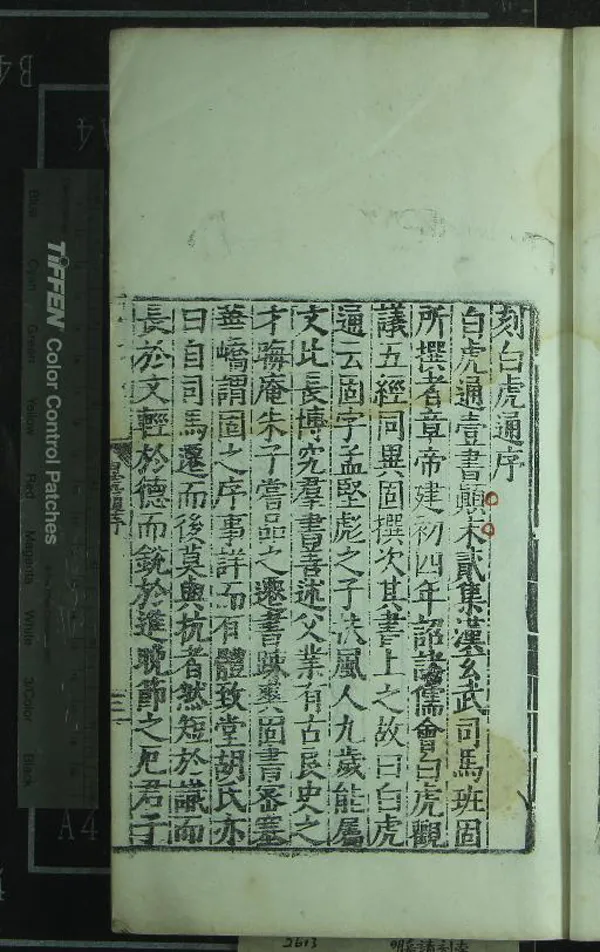 刻白虎通序
白虎通壹書顛末貳集漢玄武司馬班固
所撰者章帝建初四年詔諸儒會白虎觀
議五經同異固撰次其書上之故曰白虎
通云固字孟堅彪之子扶風人九歲能屬
文比長博究羣書善述父業有古良史之
才晦庵朱子嘗品之遷書踈爽固書密塞
華嶠謂固之序事詳而有體致堂胡氏亦
曰自司馬遷而後莫與抗者然短於識而
長於文輕於德而銳於進晚節之死君子
TIFFEN Color Control Patches
Blue
Cyan
Green
Yellow
Red
Magenta
White
3/Color
Black
B4
A4
A4
2613